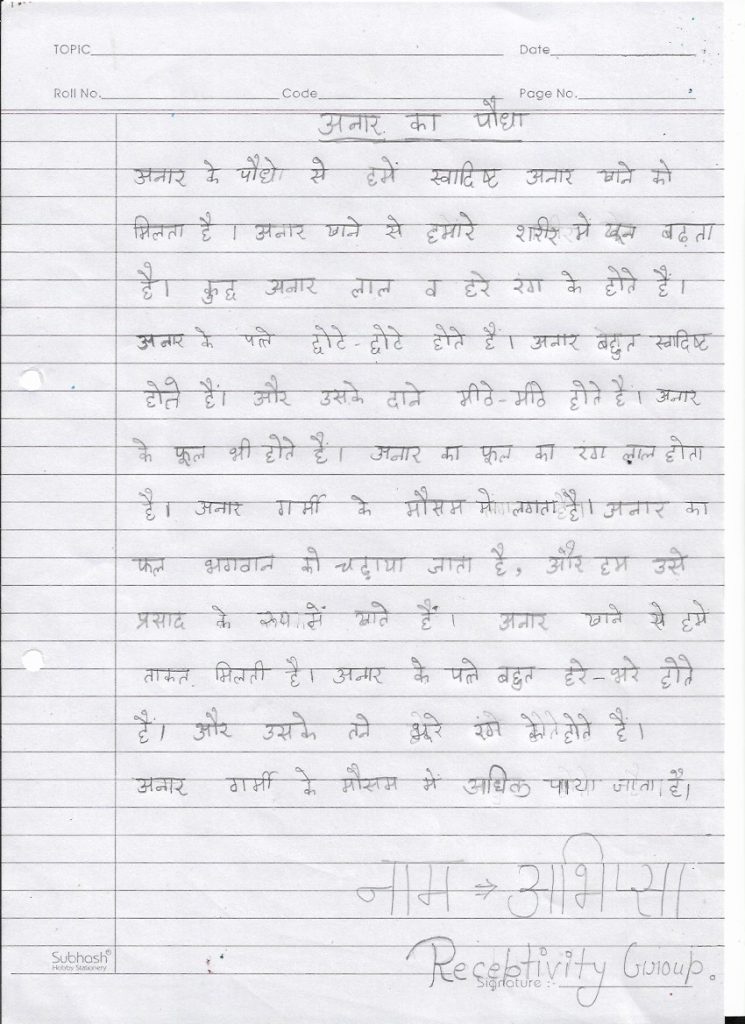 TOPIC Date
Roll No. Code Page No.
अनार का पौधा
अनार के पौधे से हमें स्वादिष्ट अनार खाने को
मिलता है । अनार खाने से हमारे शरीर में खून बढ़ता
है। कुछ अनार लाल व हरे रंग के होते हैं।
अनार के पत्ते छोटे-छोटे होते हैं। अनार बहुत स्वादिष्ट
होते हैं। और उसके दाने मीठे-मीठे होते हैं। अनार
के फूल भी होते हैं। अनार का फूल का रंग लाल होता
है। अनार गर्मी के मौसम में लगता है। अनार का
फल भगवान को चढ़ाया जाता है, और हम उसे
प्रसाद के रूप में खाते हैं। अनार खाने से हमे
ताकत मिलती है। अनार के पत्ते बहुत हरे-भरे होते
हैं। और उसके तने भूरे रंग के होते हैं।
अनार गर्मी के मौसम में अधिक पाया जाता है।
नाम ⇒ अभिप्सा
Receptivity Group.
Subhash® Signature :-
Hobby Stationery